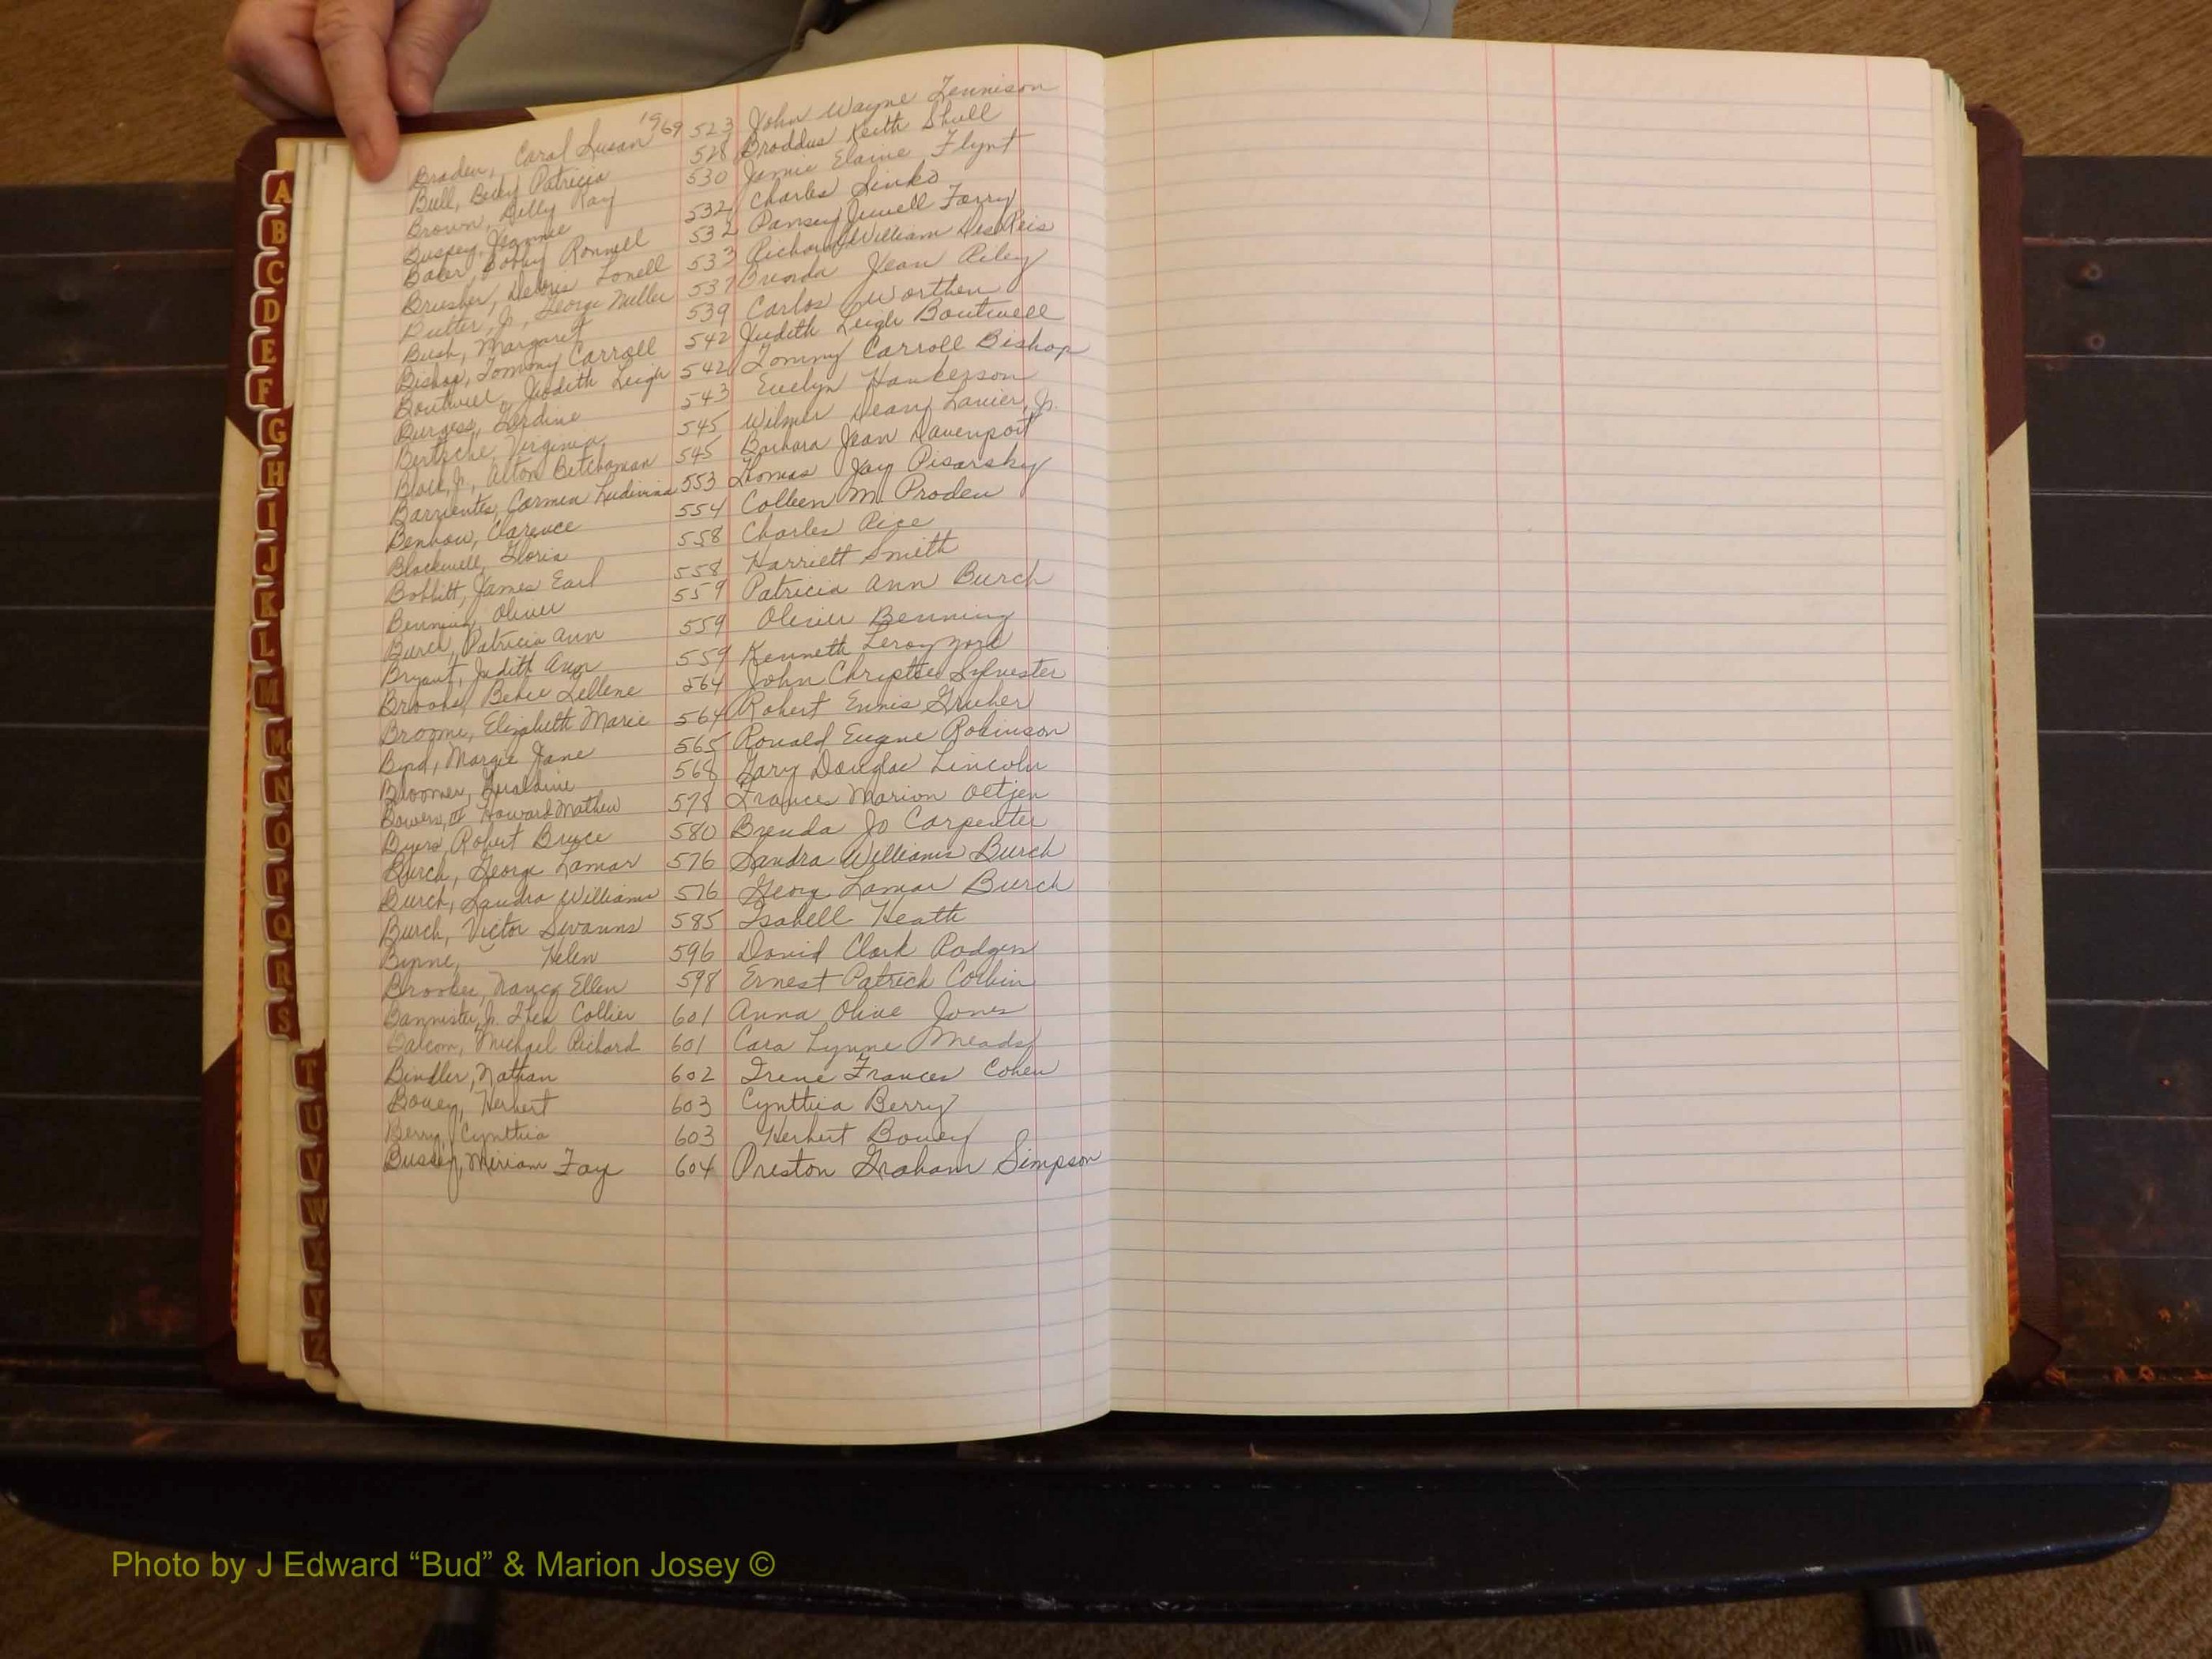 Braden, Carol Susan 1969 523 John Wayne Tennison
Bull, Becky Patricia 528 Broddus Keith Shull
Brown, Billy Ray 530 Jamie Elaine Flynt
Bussey, Jeannie 532 Charles Sinko
Baker, Bobby Ronnell 532 Pansey Jewell Forry
Brusher, Delois Lonell 533 Richard William DesReis
Butler, Jr., George Miller 537 Brenda Jean Riley
Bush, Margaret 539 Carlos Worthen
Bishop, Tommy Carroll 542 Judith Leigh Boutwell
Boutwell, Judith Leigh 542 Tommy Carroll Bishop
Burgess, Gerdine 543 Evelyn Hankerson
Bertsche, Virginia 545 Wilmer Dean Lanier, Jr.
Jr., Alton 545 Barbara Jean Davenport
Barrientes, Carmen Ludivina 553 Thomas Jay Pisarsky
Benbow, Clarence 554 Colleen M. Proden
Blackwell, Gloria 558 Charles Rice
Bobbitt, James Earl 558 Harriett Smith
Benning, Oliver 559 Patricia Ann Burch
Burch, Patricia Ann 559 Oliver Benning
Bryant, Judith Ann 559 Kenneth Leroy York
Brooks, Zellene 564 John Sylvester
Broome, Elizabeth Marie 564 Robert Ennis Gruber
Byrd, Margie Jane 565 Ronald Eugene Robinson
Geraldine 568 Gary Douglas Lincoln
Bowers, III Howard Mathew 578 Frances Marion Oetjen
Byers, Robert Bruce 580 Brenda Jo Carpenter
Burch, George Lamar 576 Sandra Williams Burch
Burch, Sandra Williams 576 Georg Lamar Burch
Burch, Victor Swanns 585 Isabell Heath
Helen 596 David Clark Rodgers
Brooker, Nancy Ellen 598 Ernest Patrick Corbin
Bannister, Jr. Collier 601 Anna Olive Jones
Balcom, Michael Richard 601 Cara Lynne Meads
Bindler, Nathan 602 Irene Frances Cohen
Bouey, Herbert 603 Cynthia Berry
Berry, Cynthia 603 Herbert Bouey
Bussey, Miriam Fay 604 Preston Graham Simpson
A
B
C
D
E
F
G
H
I
J
K
L
M
Mc
N
O
P
Q
R
S
T
U
V
W
X
Y
Z
Photo by J Edward “Bud” & Marion Josey ©